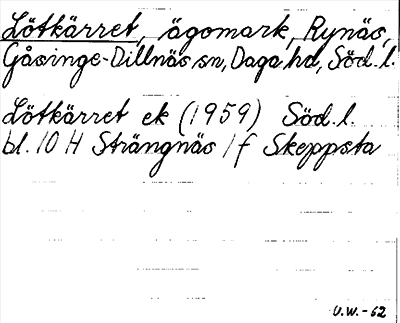 Lötkärret, ägomark, Rynäs,
Gåsinge-Dillnäs sn, Daga hd, Söd. l.
Lötkärret ek (1959) Söd. l.
bl. 10 H Strängnäs 1 f Skeppsta
U.W. - 62